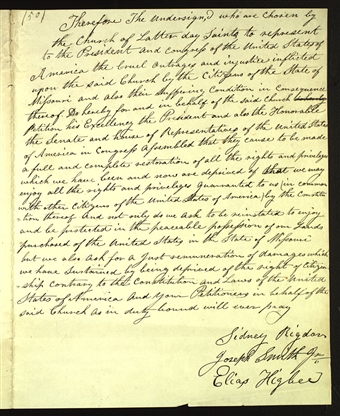 (50)
Therefore The Undersign,d who are chosen by
the Church of Latter day Saints to represent
to the President and Congress of the United States of
America the Cruel outrages and injustice inflicted
upon the said Church by the Citizens of the State of
Missouri and also their Suffering Condition in Consequence
thereof Do hereby for and in behalf of the said Church
Petition his Excellency the President and also the Honorable
the Senate and House of Representatives of the United States
of America in Congress Assembled that they cause to be made
a full and complete restoration of all the rights and privileges
which we have been and now are deprived of that we may
enjoy all the rights and privileges guaranteed to us (in common
with other Citizens of the United States of America) by the Constitu
tion thereof And not only do we ask to be reinstated to enjoy
and be protected in the peaceable possession of our Lands
purchased of the United States in the State of Missouri
but we also ask for a Just remuneration of damages which
we have Sustained by being deprived of the right of Citizen
ship contrary to the Constitution and Laws of the United
States of America and your Petitioners in behalf of the
said Church as in duty bound will ever pray
Sidney Rigdon
Joseph Smith Jr
Elias Higbee